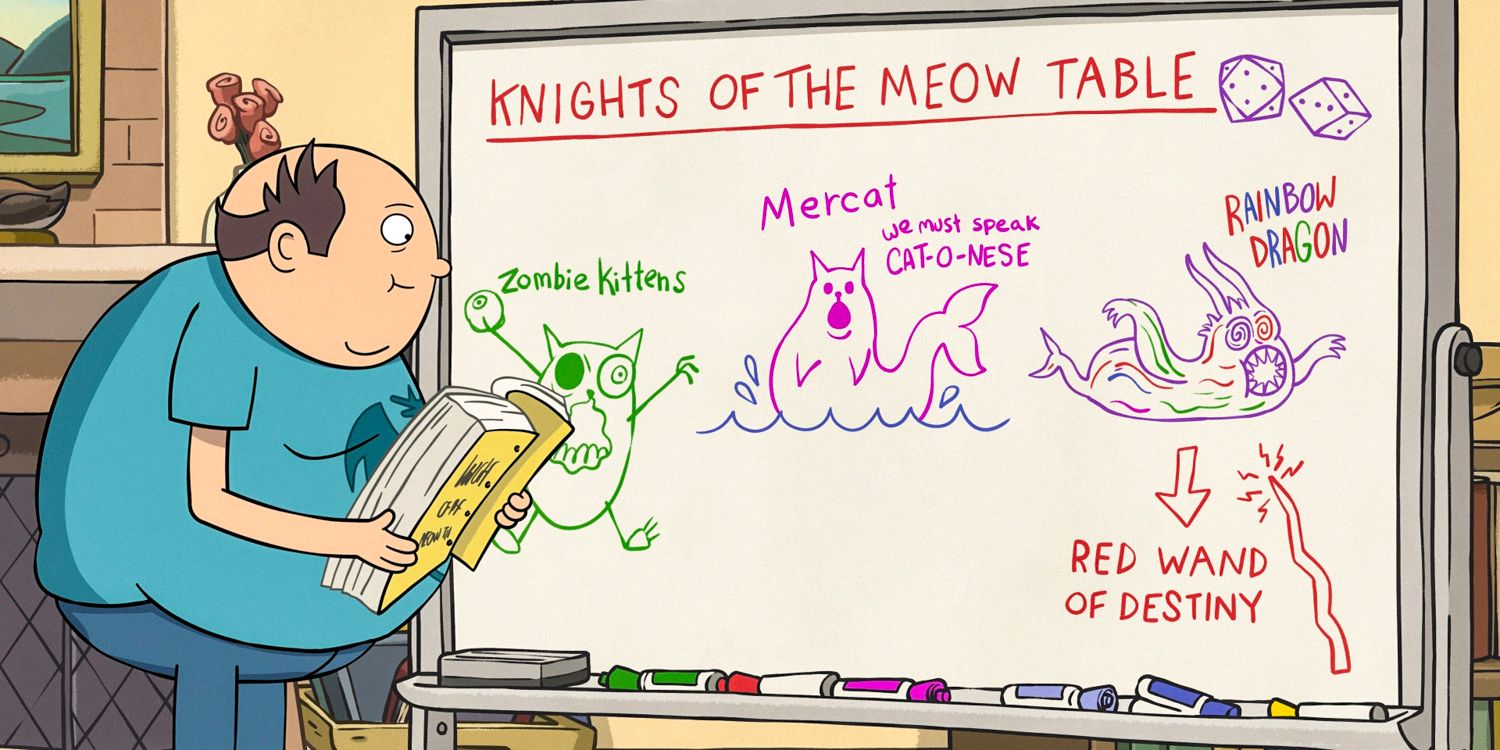 KNIGHTS OF THE MEOW TABLE
Mercat
we must speak
CAT-O-NESE
RAINBOW
DRAGON
Zombie Kittens
RED WAND
OF DESTINY